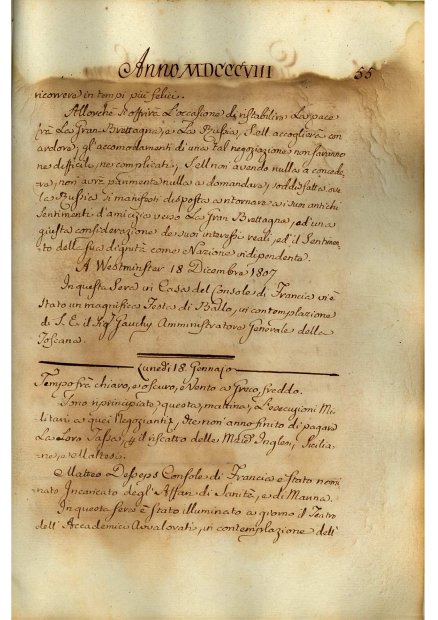 Anno MDCCCVIII 55
ricorrere in tempi più felici.
Allorchè si offrirà l'occasione di ristabilire la pace
frà la Gran Brettagna, e la Russia, S.ell accoglierà con
ardore; gl'accomodamenti di una tal negoziazione non saranno
ne difficili, ne complicati; S.ell non avendo nulla a concede-
re, non avrà parimente nulla a domandare, soddisfatto ove
la Russia si manifesti disposta a ritornare a' suoi antichi
sentimenti d'amicizia verso la Gran Brettagna, ed'una
giusta considerazione de' suoi interessi reali, ed'il Sentimen-
to della sua dignità come Nazione indipendente.
A Westminster 18 Dicembre 1807
In questa Sera in Casa del Console di Francia vi è
Stato un magnifica Festa di Ballo, in contemplazione
di S. E. il Sig.r Dauchy Amministratore Generale della
Toscana.
Lunedi 18. Gennaio
Tempo frà chiaro, e oscuro, e Vento a Greco, freddo.
Sono ripricipiate, questa mattina, l'esecuzioni Mi-
litari a quei Negozianti, che non anno finito di pagare
la loro Tassa, p il riscatto delle Inglesi, Sicilia-
ne, e Maltesi.
Matteo Desseps Console di Francia è Stato nomi-
nato Incaricato degl'Affari di Sanità, e di Marina.
In questa sera è Stato illuminato a giorno il Teatro
dell'Accademici Avvalorati, in contemplazione dell'